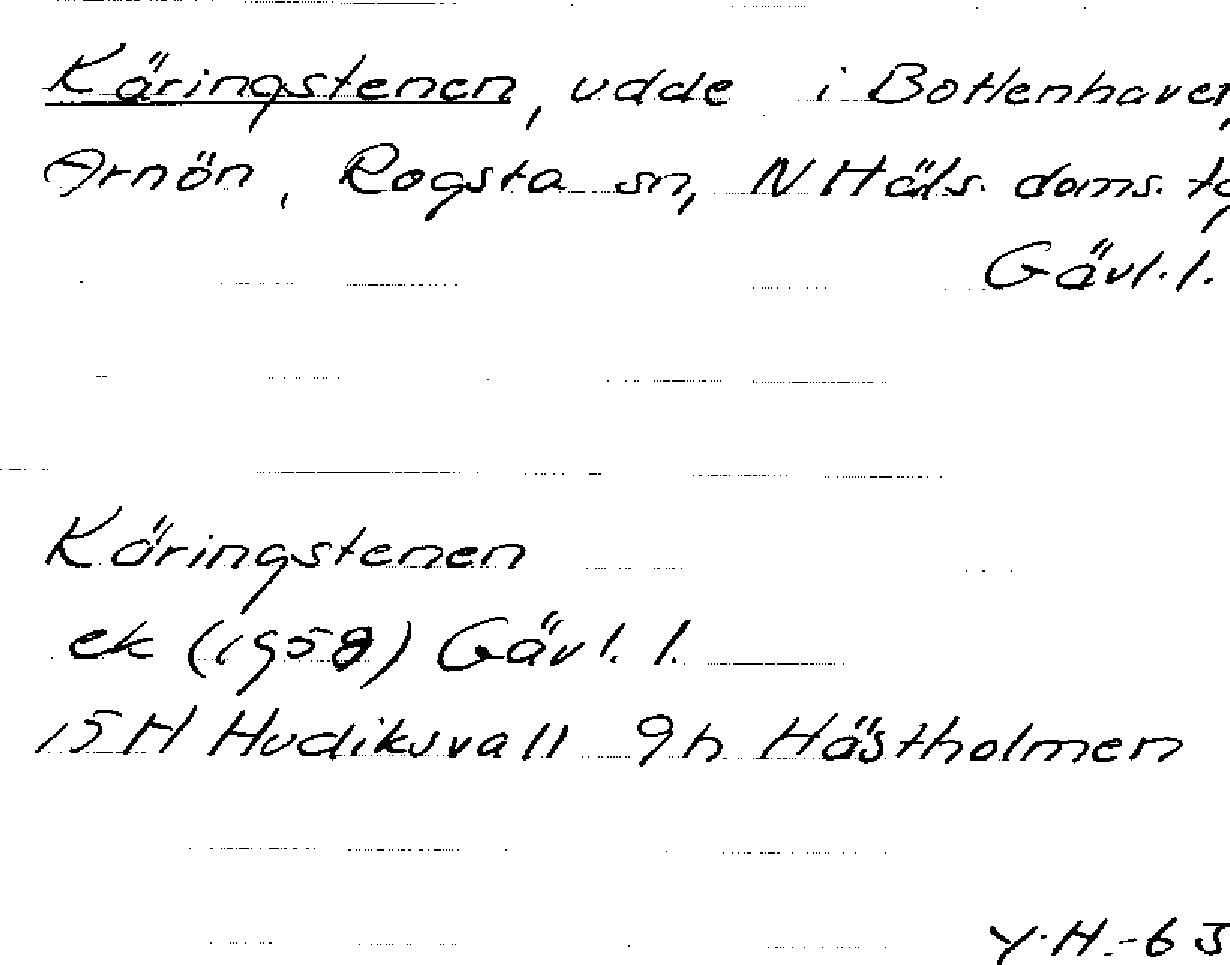 Käringstenen, udde i Bottenhavet,
Arnön, Rogsta sn, N Häls. doms. tg
Gävl. l.
Käringstenen
ek (1958) Gävl. l.
15H Hudiksvall 9h Hästholmen
Y.H.-63